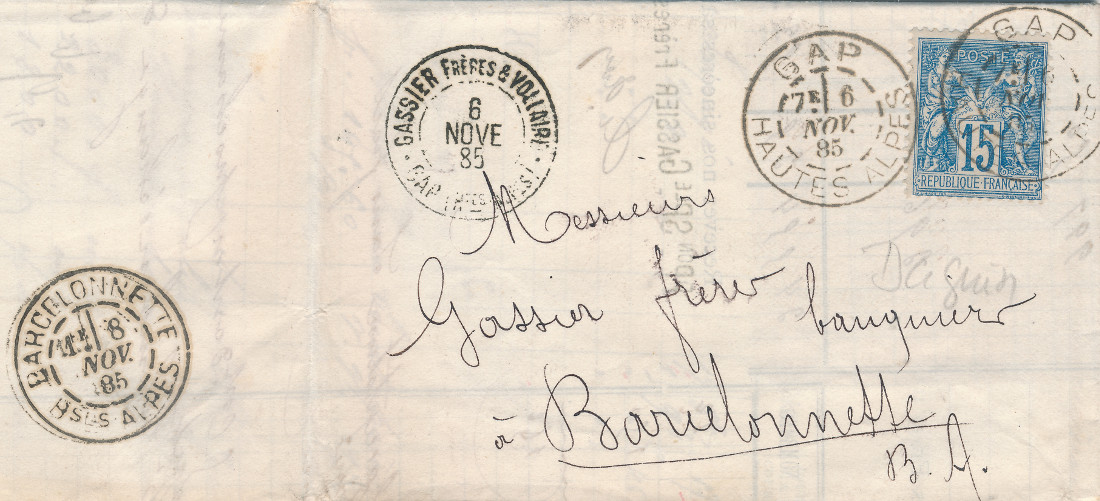 GASSIER FRÈRES & VOLLAIRE
6
NOVE
85
GAP
GAP
7E 6
NOV.
85
HAUTES ALPES
GAP
NOV.
ALPES
POSTES
15
REPUBLIQUE FRANÇAISE
Messieurs
Gassier frères banquiers
à Barcelonnette
B. A.
BARCELONNETTE
6
NOV.
85
Bses ALPES
GASSIER Frères